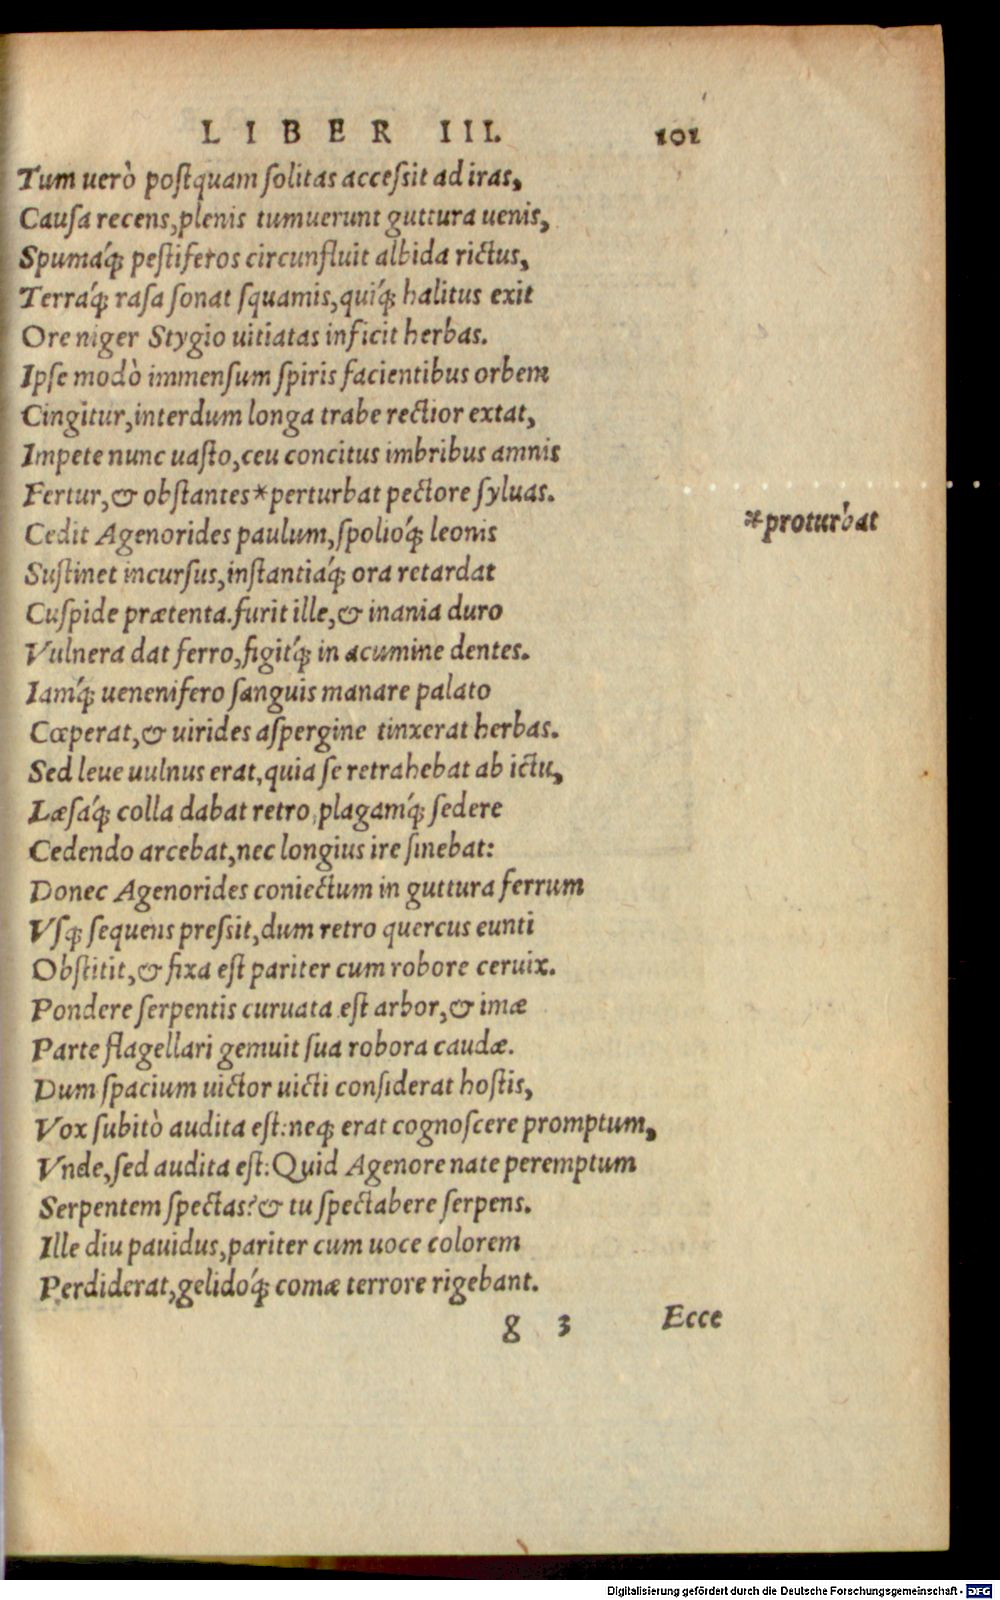 LIBER III. 101
Tum uerò postquam solitas accessit ad iras,
Causa recens, plenis tumuerunt guttura uenis,
Spumáq́; pestiferos circunfluit albida rictus,
Terráq́; rasa sonat squamis, quiq́; halitus exit
Ore niger Stygio uitiatas inficit herbas.
Ipse modò immensum spiris facientibus orbem
Cingitur, interdum longa trabe rectior extat,
Impete nunc uasto, ceu concitus imbribus amnis
Fertur, & obstantes*perturbat pectore syluas.
*proturbat
Cedit Agenorides paulum, spolioq́; leonis
Sustinet incursus, instantiaq́; ora retardat
Cuspide prætenta. furit ille, & inania duro
Vulnera dat ferro, figitq́; in acumine dentes.
Iamq́; uenenifero sanguis manare palato
Cœperat, & uirides aspergine tinxerat herbas.
Sed leue uulnus erat, quia se retrahebat ab ictu,
Læsaq́; colla dabat retro, plagamq́; sedere
Cedendo arcebat, nec longius ire sinebat:
Donec Agenorides coniectum in guttura ferrum
Vsq; sequens pressit, dum retro quercus eunti
Obstitit, & fixa est pariter cum robore ceruix.
Pondere serpentis curuata est arbor, & imæ
Parte flagellari gemuit sua robora caudæ.
Dum spacium uictor uicti considerat hostis,
Vox subitò audita est: neq; erat cognoscere promptum,
Vnde, sed audita est: Quid Agenore nate peremptum
Serpentem spectas? & tu spectabere serpens.
Ille diu pauidus, pariter cum uoce colorem
Perdiderat, gelidoq́; comæ terrore rigebant.
g 3 Ecce
Digitalisierung gefördert durch die Deutsche Forschungsgemeinschaft - DFG